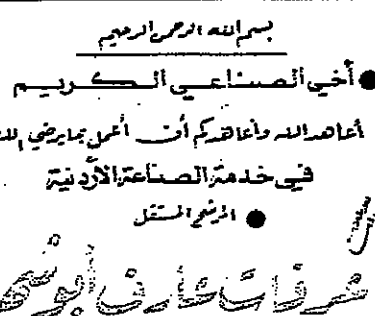 بسم الله الرحمن الرحيم
● أخي الصناعي الكريم
أعاهد الله وأعاهدكم أن أعمل بما يرضي الله
في خدمة الصناعة الأردنية
● المرشح المستقل
عرفات عارف أبو